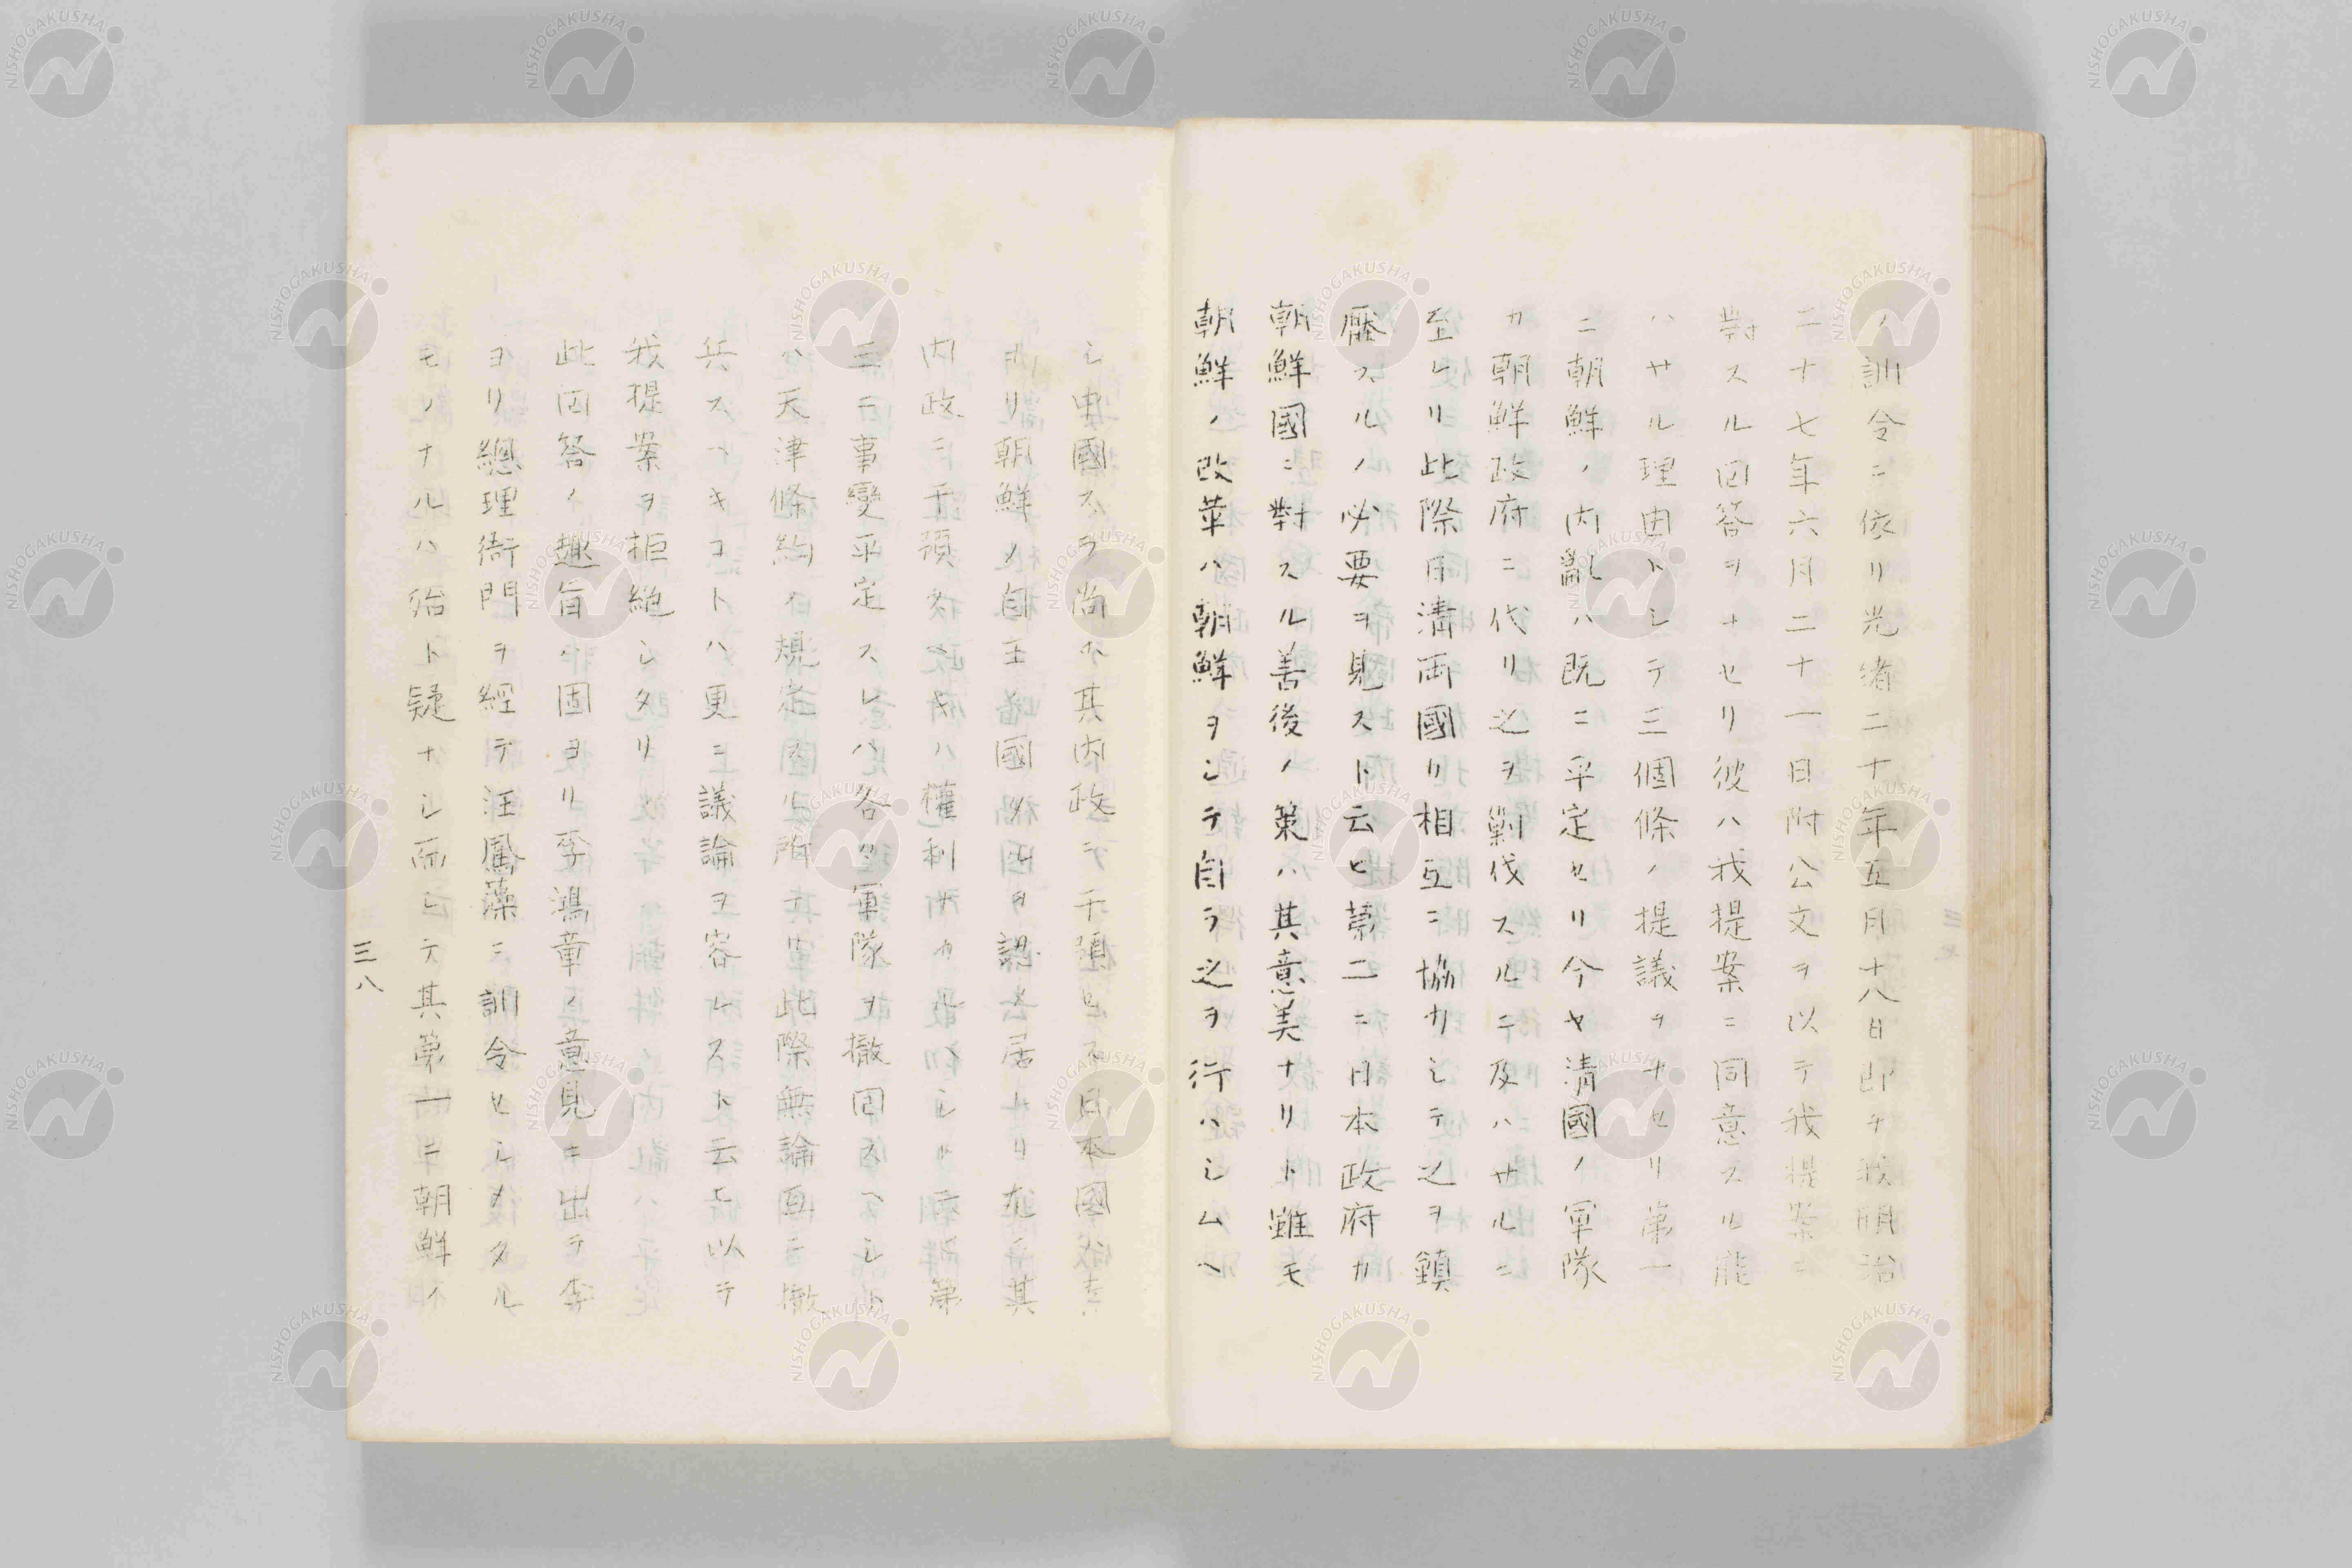 ノ訓令ニ依リ光緒二十年五月十八日即チ我明治
二十七年六月二十一日附公文ヲ以テ我提案ニ
對スル回答ヲナセリ彼ハ我提案ニ同意スル能
ハサル理由トシテ三個條ノ提議ヲナセリ第一
ニ朝鮮ノ内亂ハ既ニ平定セリ今ヤ清國ノ軍隊
カ朝鮮政府ニ代リ之ヲ剿伐スルニ及ハサルニ
至レリ此際日清両國リ相互ニ協力シテ之ヲ鎮
壓スルノ必要ヲ見スト云ヒ第二ニ日本政府カ
朝鮮國ニ對スル善後ノ策ハ其意美ナリト雖モ
朝鮮ノ改革ハ朝鮮ヲシテ自ラ之ヲ行ハシムヘ
シ中國スラ尚ホ其内政ニ干預セス日本國ハ素
ヨリ朝鮮ノ自主國タルヲ認メ居レリ尤モ其
内政ニ干預スヘキハ權利ナカルヘシト云ヒ第
三ニ事變平定スレハ各其軍隊ヲ撤回スヘシト
ハ天津條約ノ規定スル所ナリ此際無論互ニ撤
兵スヘキコトハ更ニ議論ヲ容レスト云ヒ以テ
我提案ヲ拒絶シタリ
此回答ノ趣旨ハ固ヨリ李鴻章ノ意見ニ出テ李
ヨリ總理衙門ヲ經テ汪鳳藻ニ訓令セシメタル
モノナルハ殆ト疑ナシ而シテ其第一ニ朝鮮ノ
三八
NISHOGAKUSHA